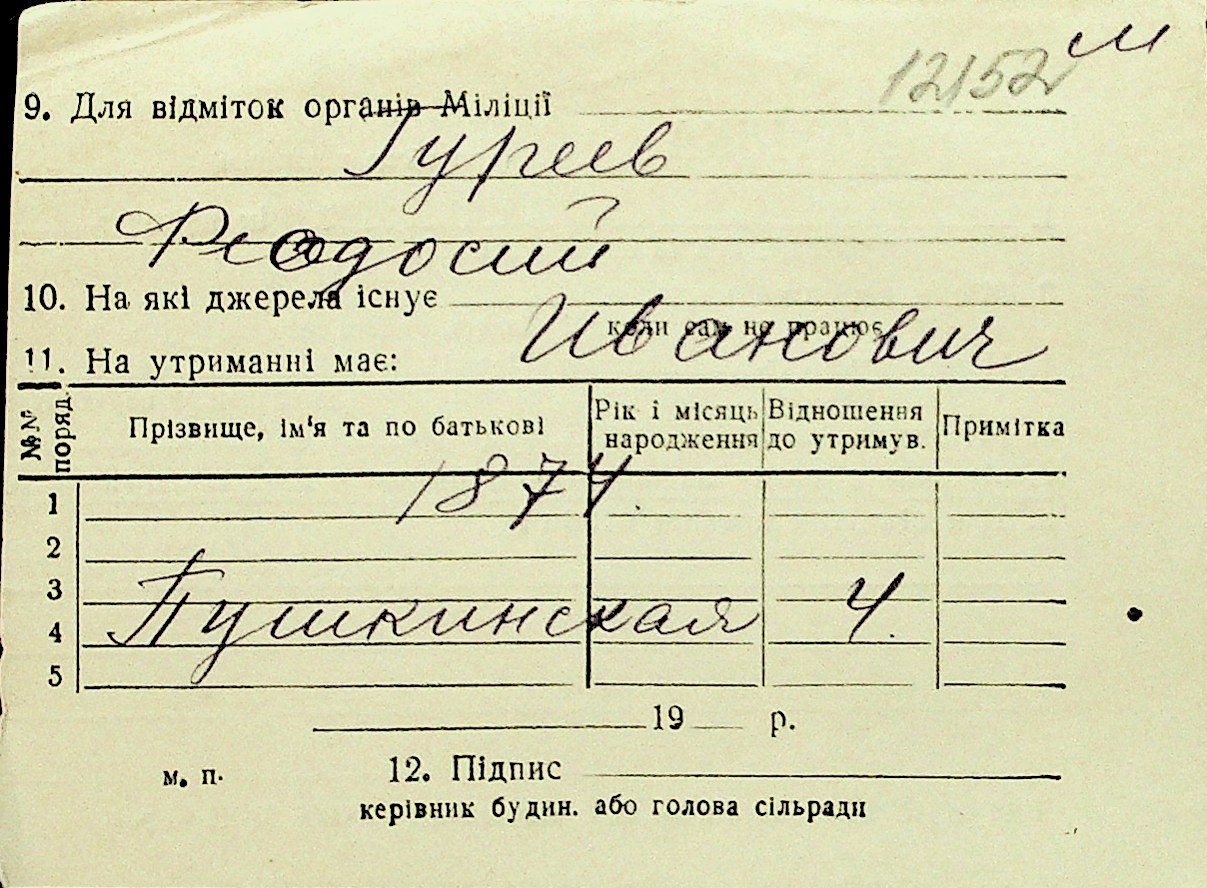 12152 м
9. Для відміток органів Міліції
Гуреев
Феодосий
10. На які джерела існує
коли сам не працює
Иванович
11. На утриманні має:
№№ поряд. Прізвище, ім'я та по батькові Рік і місяць народження Відношення до утримув. Примітка
1874
1
2
3
Пушкинская 4.
4
5
19 р.
м. п. 12. Підпис
керівник будин. або голова сільради